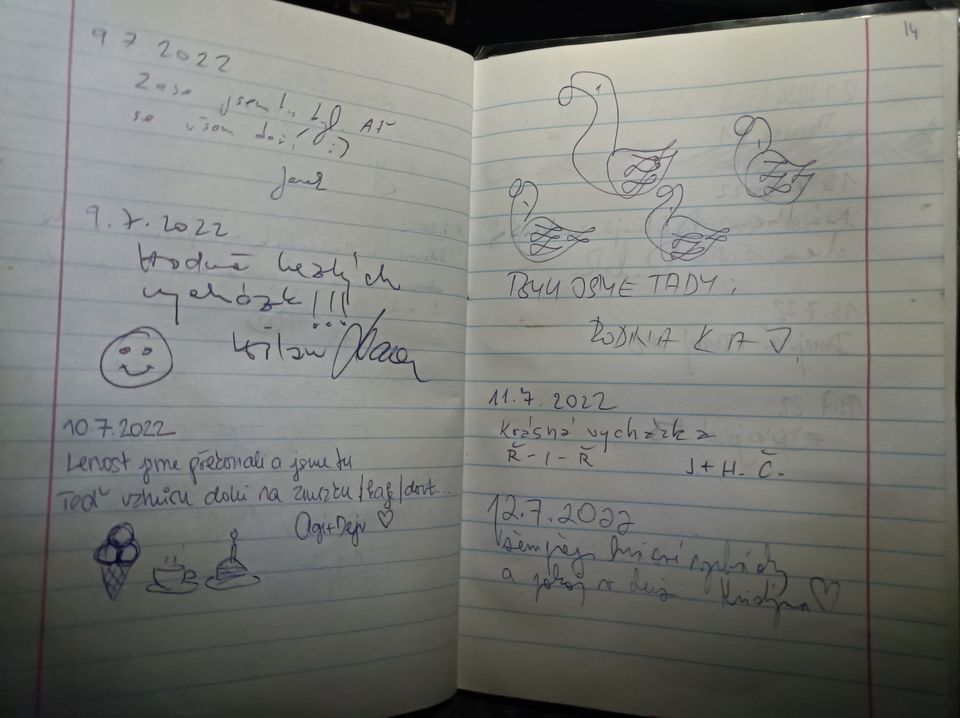 9 7 2022
Zase jsem
se všem daří :)
9.7.2022
Hodně hezkých
vycházek!!!
10.7.2022
Lenost jsme překonali a jsme tu
Teď vzhůru dolů na zmrzku/kaf/dort...
Agi+Dejv ♡
14
BYLI JSME TADY:
RODINA K A J.
11.7.2022
Krásná vycházka
Ř-1-Ř J+H. Č.
12.7.2022
a pokoj v duši Kristýna ♡